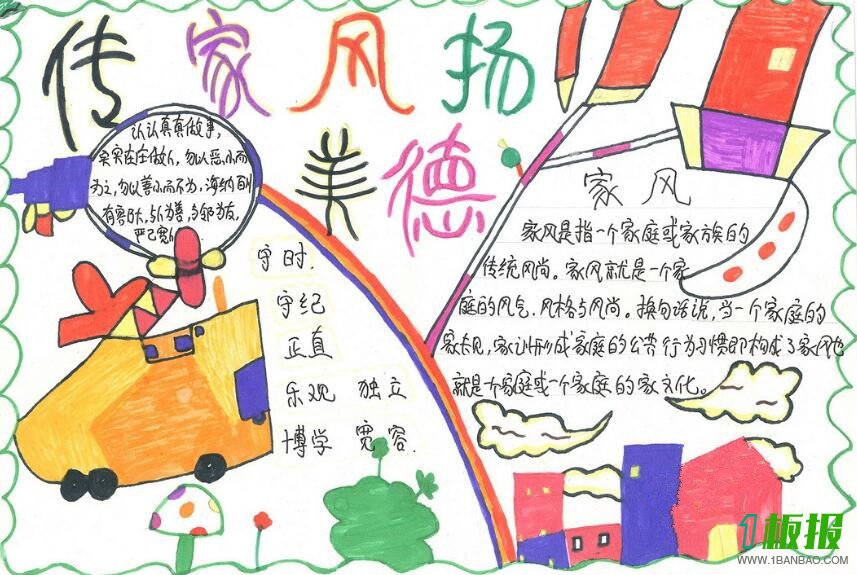 传家风扬
美德
认认真真做事,
实实在在做人,勿以恶小而
为之,勿以善小而不为,海纳百川
有容乃大,与人为善,与邻为友,
严己宽人
守时.
守纪
正直
乐观 独立
博学 宽容.
家风
家风是指一个家庭或家族的
传统风尚。家风就是一个家
庭的风气,风格与风尚。换句话说,当一个家庭的
家长见,家训形成家庭的公共行为习惯即构成了家风也
就是一个家庭或一个家庭的家文化。
1板报
WWW.1BANBAO.COM